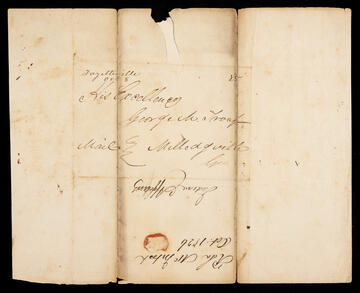 Fayetteville
Oct 8
25
His Excellency
George M. Troup
Mail Milledgeville
Geo
Indian Affairs
Oct. 1826